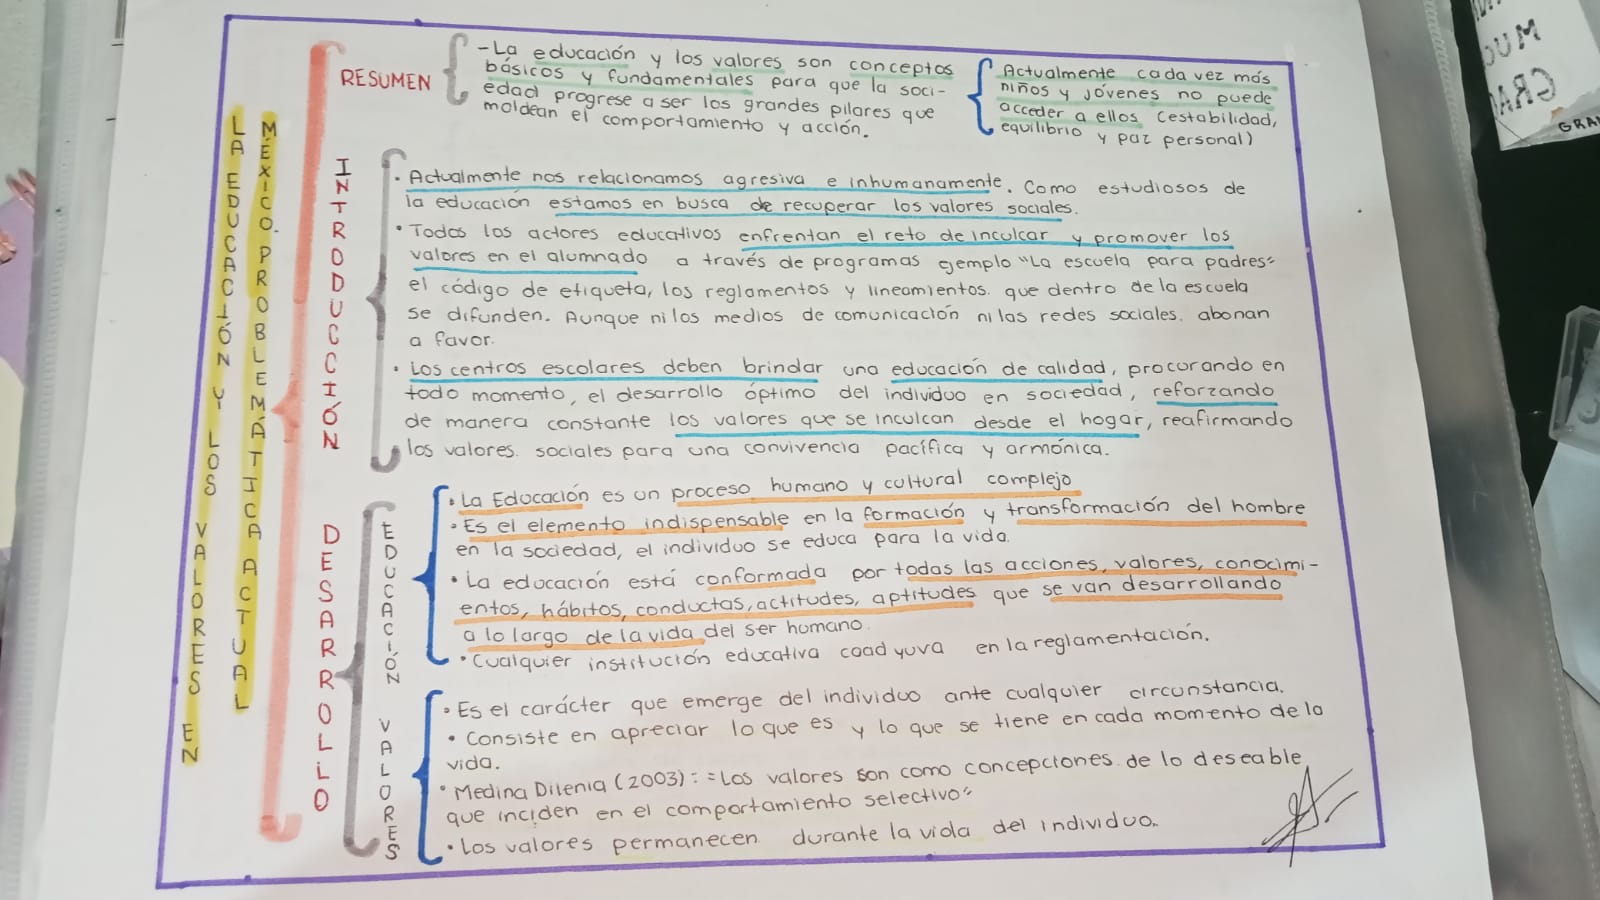 LA EDUCACIÓN Y LOS VALORES EN
MÉXICO. PROBLEMÁTICA ACTUAL
RESUMEN
-La educación y los valores son conceptos
básicos y fundamentales para que la soci-
edad progrese a ser los grandes pilares que
moldean el comportamiento y acción.
Actualmente cada vez más
niños y jóvenes no puede
acceder a ellos (estabilidad,
equilibrio y paz personal)
INTRODUCCIÓN
· Actualmente nos relacionamos agresiva e inhumanamente. Como estudiosos de
la educación estamos en busca de recuperar los valores sociales.
· Todos los actores educativos enfrentan el reto de inculcar y promover los
valores en el alumnado a través de programas ejemplo "La escuela para padres"
el código de etiqueta, los reglamentos y lineamientos. que dentro de la escuela
se difunden. Aunque ni los medios de comunicación ni las redes sociales. abonan
a favor.
· Los centros escolares deben brindar una educación de calidad, procurando en
todo momento, el desarrollo óptimo del individuo en sociedad, reforzando
de manera constante los valores que se inculcan desde el hogar, reafirmando
los valores. sociales para una convivencia pacífica y armónica.
DESARROLLO
EDUCACIÓN
· La Educación es un proceso humano y cultural complejo
· Es el elemento indispensable en la formación y transformación del hombre
en la sociedad, el individuo se educa para la vida.
· La educación está conformada por todas las acciones, valores, conocimi-
entos, hábitos, conductas, actitudes, aptitudes que se van desarrollando
a lo largo de la vida del ser humano.
· Cualquier institución educativa coadyuva en la reglamentación.
VALORES
· Es el carácter que emerge del individuo ante cualquier circunstancia.
· Consiste en apreciar lo que es y lo que se tiene en cada momento de la
vida.
· Medina Dilenia (2003): "Los valores son como concepciones. de lo deseable
que inciden en el comportamiento selectivo"
· Los valores permanecen durante la vida del individuo.
GRA